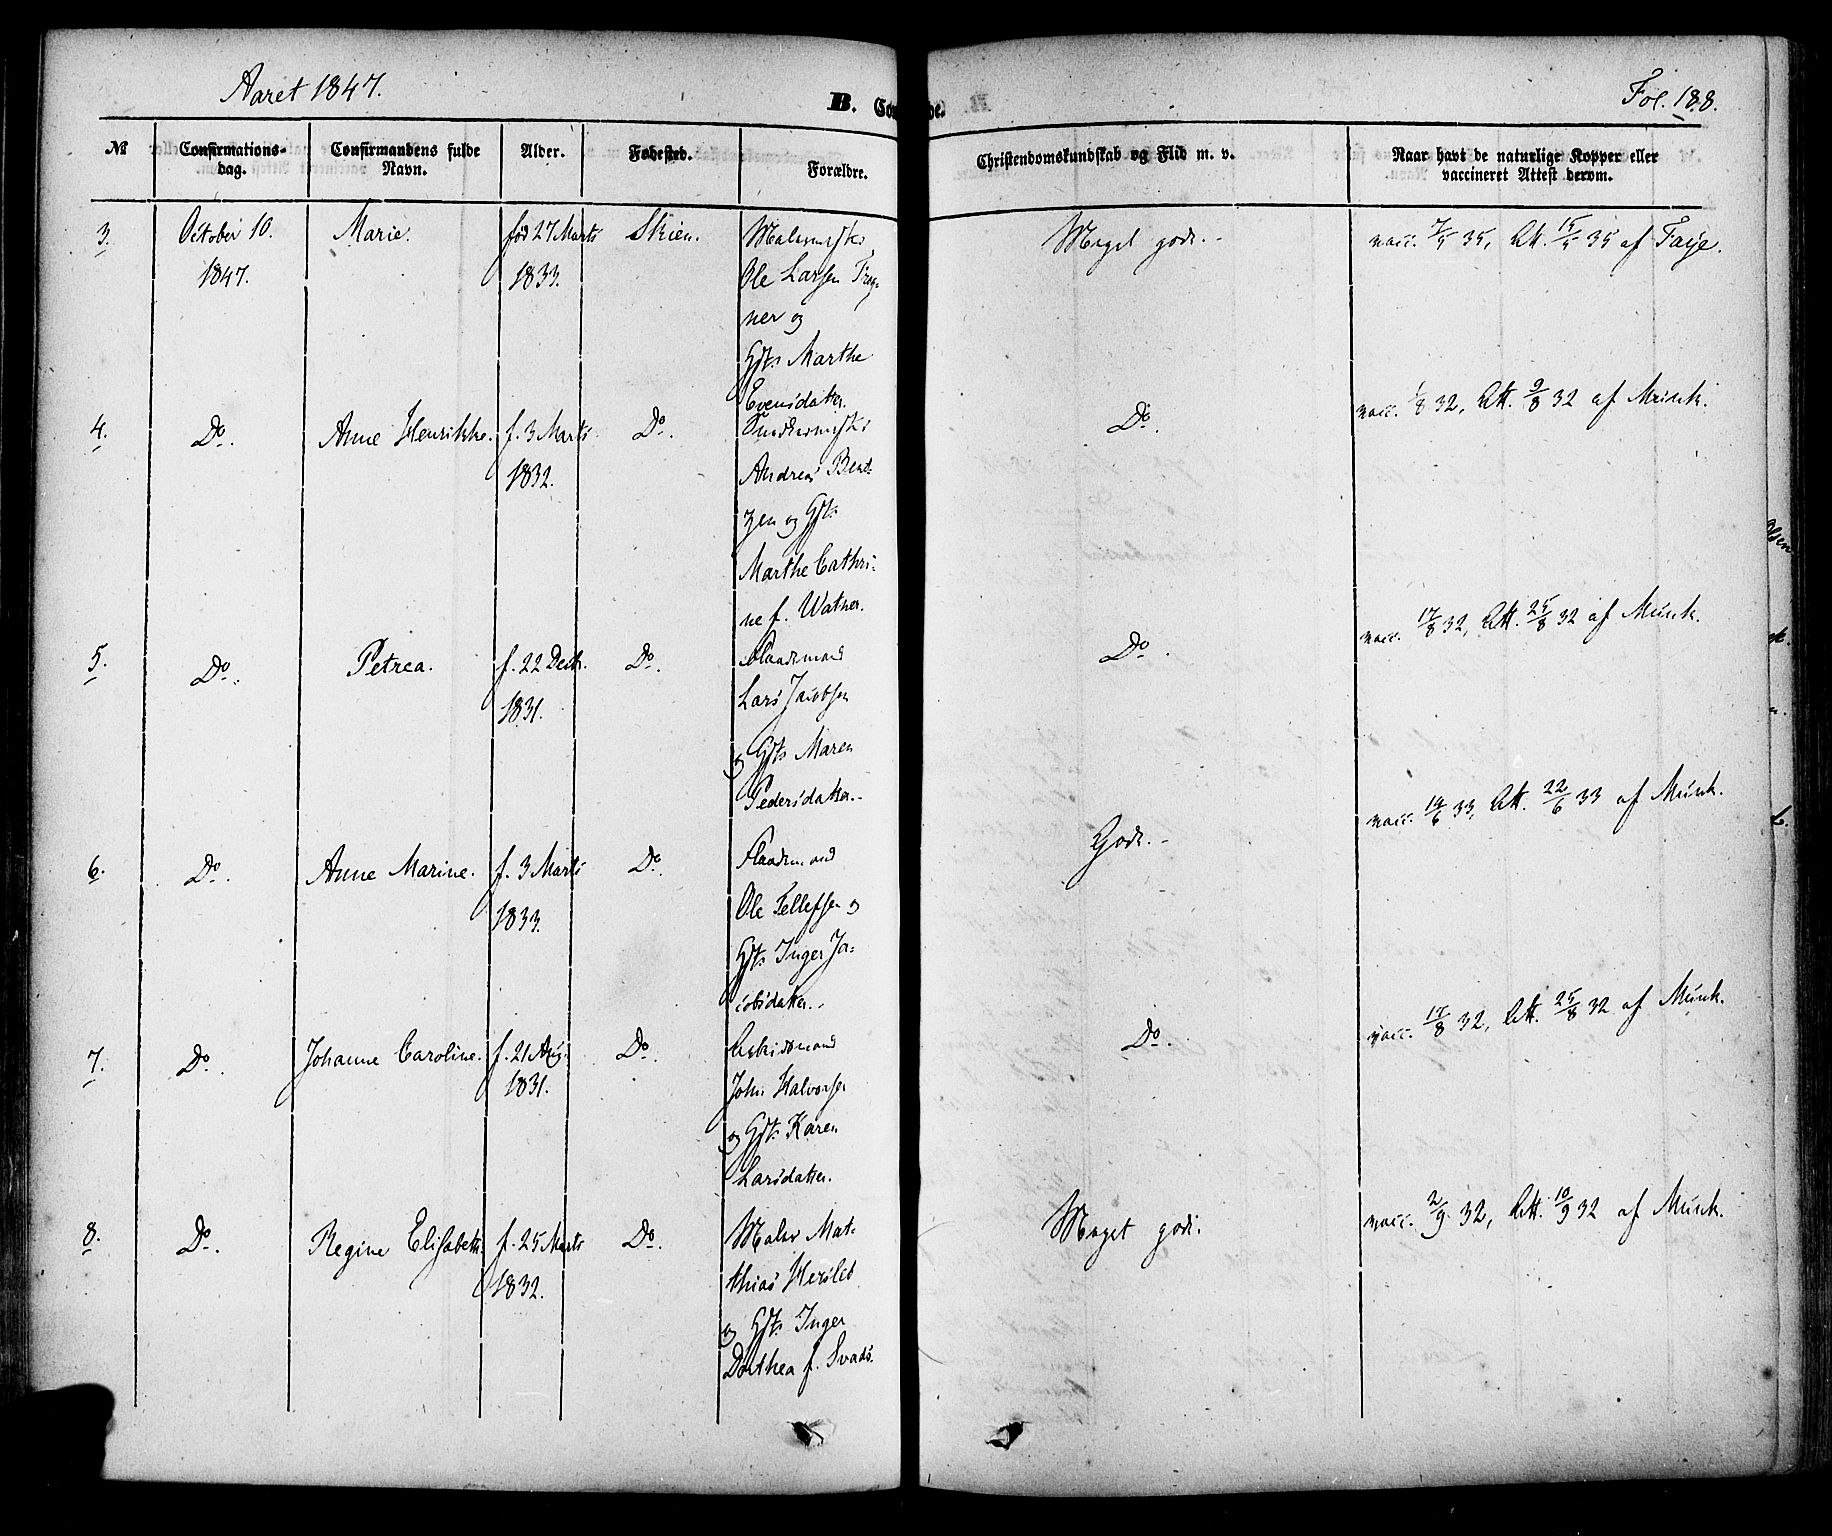 Aaret 1847.
B.
Fol. 188.
№
Confirmations-
dag.
Confirmandens fulde
Navn.
Alder.
Fødested.
Forældre.
Christendomskundskab og Flid m. v.
Naar havt de naturlige Kopper eller
vaccineret Attest derom.
3.
October 10.
1847.
Marie.
fød 27 Marts
1833.
Skien.
Ole Larsen
ner og
Gifts Marthe
Evensdatter.
Meget god.
vacc. 35, Att. 35 af Faye.
4.
Do.
Anne Henrikke.
f. 3 Marts
1832.
Do.
Andreas Bent-
zen og Gifts
Marthe Cathri-
ne f. Watner.
Do.
vacc. 1/8 32, Att. 9/8 32 af Munk.
5.
Do.
Petrea.
f. 22 Decb.
1831.
Do.
Lars Jacobsen
og Gifts Maren
Pedersdatter.
Do.
vacc. 17/8 32, Att. 25/8 32 af Munk.
6.
Do.
Anne Marine.
f. 3 Marts
1833.
Do.
Ole Tellefsen og
Gifts Inger Ja-
cobsdatter.
God.
vacc. 14/6 33, Att. 22/6 33 af Munk.
7.
Do.
Johanne Caroline.
f. 21 Aug.
1831.
Do.
Arbeidsmand
John Halvorsen
og Gifts Karen
Larsdatter.
Do.
vacc. 17/8 32, Att. 25/8 32 af Munk.
8.
Do.
Regine Elisabeth.
f. 25 Marts
1832.
Do.
Maler Mat-
thias Hersleb
og Gifts Inger
Dorthea f. Svads.
Meget god.
vacc. 2/9 32, Att. 10/9 32 af Munk.